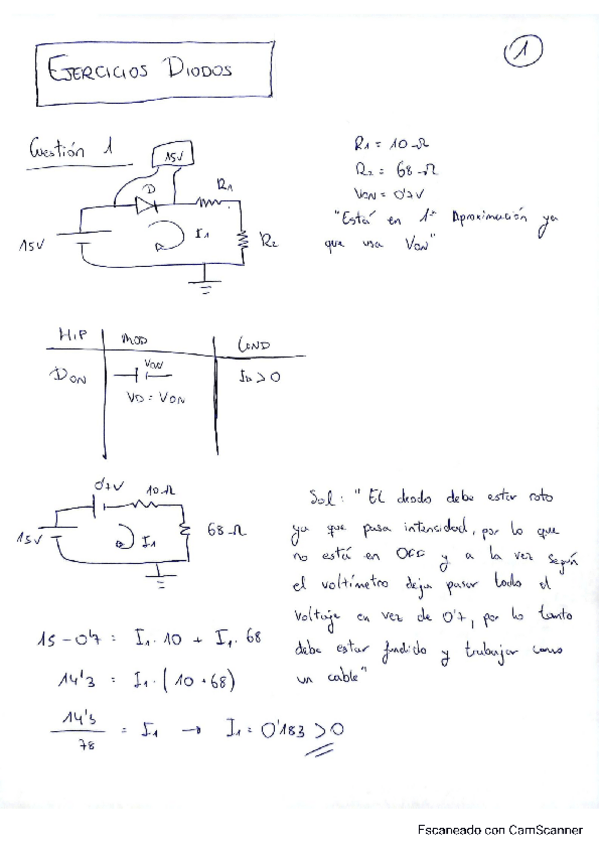 1
EJERCICIOS DIODOS
Cuestión 1
15V
D
R1
I1
R2
15V
R1 = 10 Ω
R2 = 68 Ω
VON = 0'7V
"Está en 1ª Aproximación ya
que usa VON"
HIP MOD COND
DON VON ID > 0
VD = VON
0'7V 10 Ω
15V I1 68 Ω
Sol: "El diodo debe estar roto
ya que pasa intensidad, por lo que
no está en OFF y a la vez según
el voltímetro deja pasar todo el
voltaje en vez de 0'7, por lo tanto
debe estar fundido y trabajar como
un cable"
15 - 0'7 = I1 · 10 + I1 · 68
14'3 = I1 · (10 + 68)
14'3
78
= I1 → I1 = 0'183 > 0
Escaneado con CamScanner